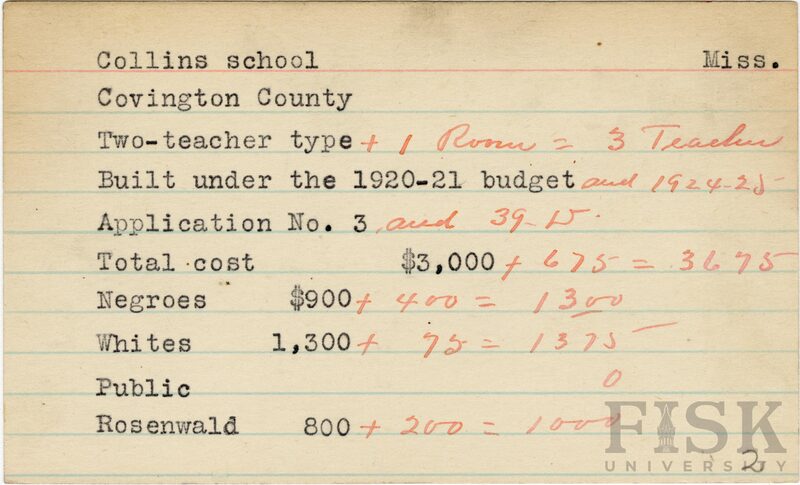 Collins school Miss.
Covington County
Two-teacher type + 1 Room = 3 Teacher
Built under the 1920-21 budget and 1924-25
Application No. 3 and 39-D.
Total cost $3,000 + 675 = 3675
Negroes $900 + 400 = 1300
Whites 1,300 + 75 = 1375
Public 0
Rosenwald 800 + 200 = 1000
FISK
UNIVERSITY
2